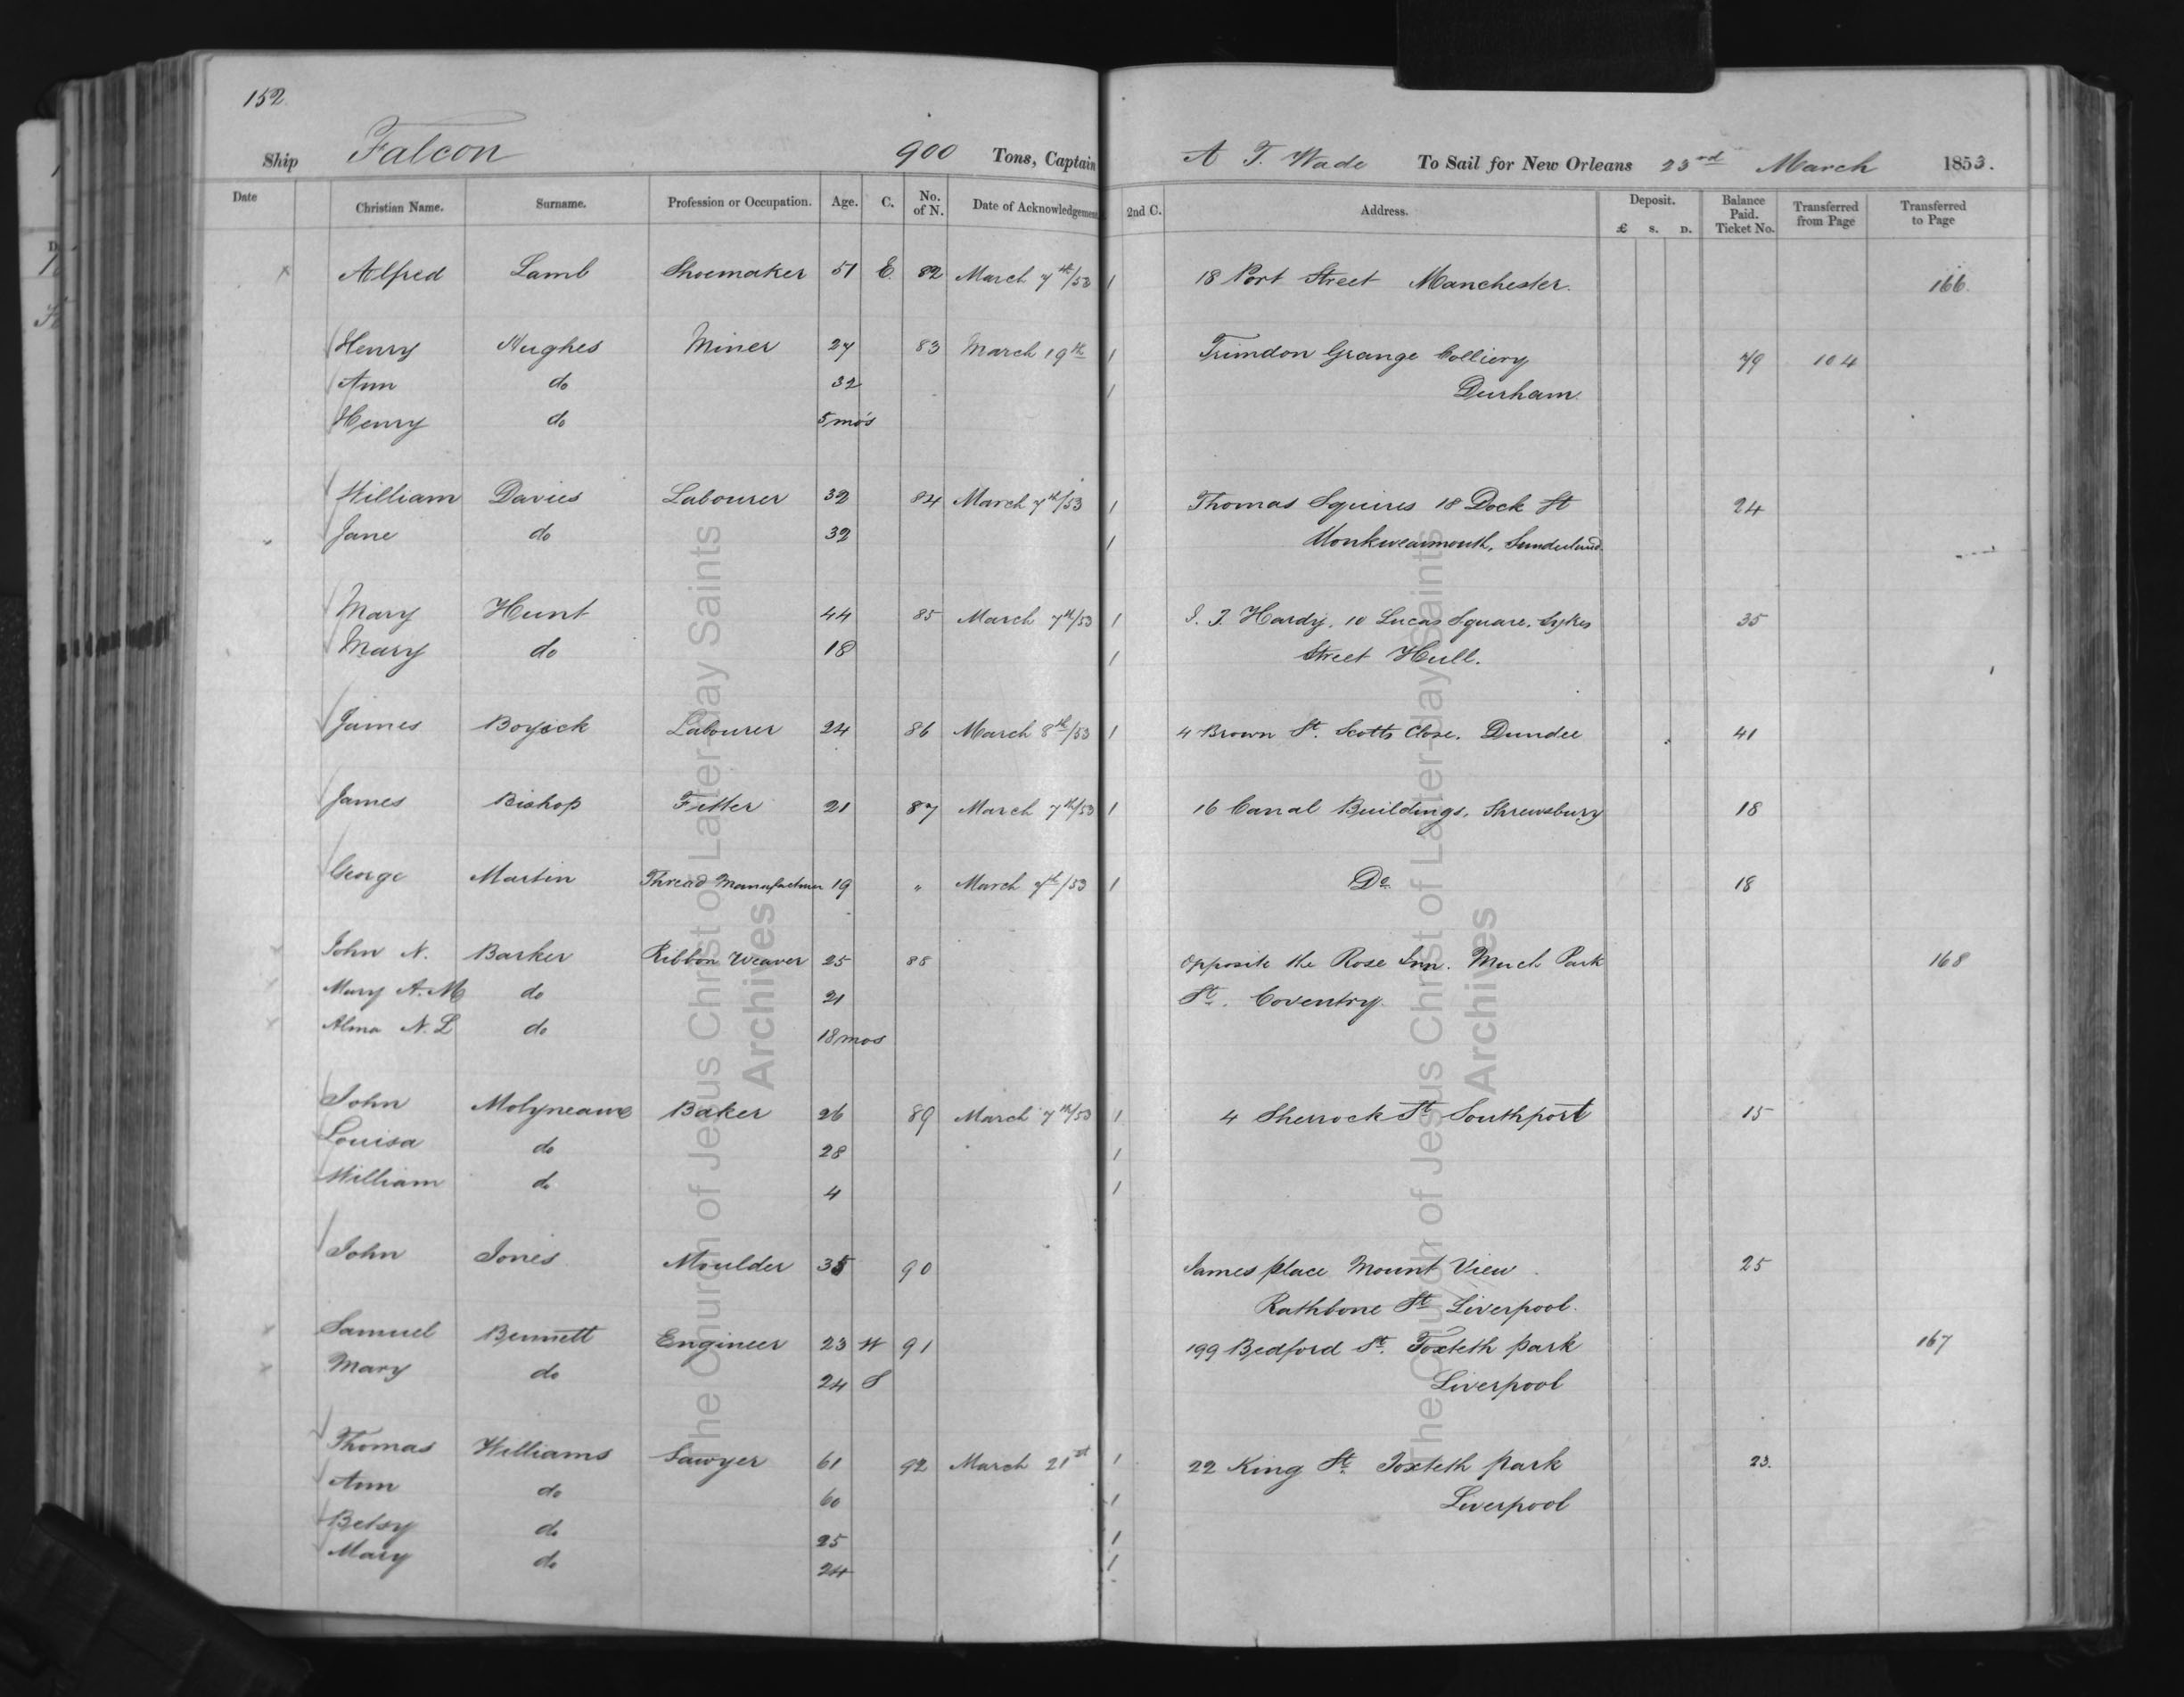 152
Ship Falcon 900 Tons, Captain A T. Wade To Sail for New Orleans 23rd March 1853.
Date Christian Name. Surname. Profession or Occupation. Age. C. No. of N. Date of Acknowledgement. 2nd C. Address. Deposit. £ S. D. Balance Paid. Ticket No. Transferred from Page Transferred to Page
Alfred Lamb Shoemaker 51 E. 82 March 7th/53 1 18 Port Street Manchester. 166.
Henry Hughes Miner 27 83 March 19th 1 Trimdon Grange Colliery 79 104
Ann do 32 1 Durham.
Henry do 5 mo's
William Davies Labourer 32 84 March 7th/53 1 Thomas Squires 18 Dock St 24
Jane do 32 1 Monkwearmouth, Sunderland.
Mary Hunt 44 85 March 7th/53 1 Hardy, 10 Lucas Square, Sykes 35
Mary do 18 1 Street Hull.
James Boyack Labourer 24 86 March 8th/53 1 4 Brown St. Scotts Close. Dundee 41
James Bishop Fitter 21 87 March 7th/53 1 16 Canal Buildings, Shrewsbury 18
George Martin Thread Manufacturer 19 " March 7th/53 1 Do 18
John N. Barker Ribbon Weaver 25 88 Opposite the Rose Inn. Much Park 168
Mary A. M do 21 St. Coventry.
Alma N. L do 18 mos
John Molyneaux Baker 26 89 March 7th/53 1 4 Sherrock St Southport 15
Louisa do 28 1
William do 4 1
John Jones Moulder 35 90 James place Mount View 25
Rathbone St Liverpool.
Samuel Bennett Engineer 23 W 91 199 Bedford St. Toxteth park 167
Mary do 24 S Liverpool
Thomas Williams Sawyer 61 92 March 21st 1 22 King St. Toxteth park 23.
Ann do 60 1 Liverpool
Betsy do 25 1
Mary do 24 1
The Church of Jesus Christ of Latter-day Saints
Archives
The Church of Jesus Christ of Latter-day Saints
Archives